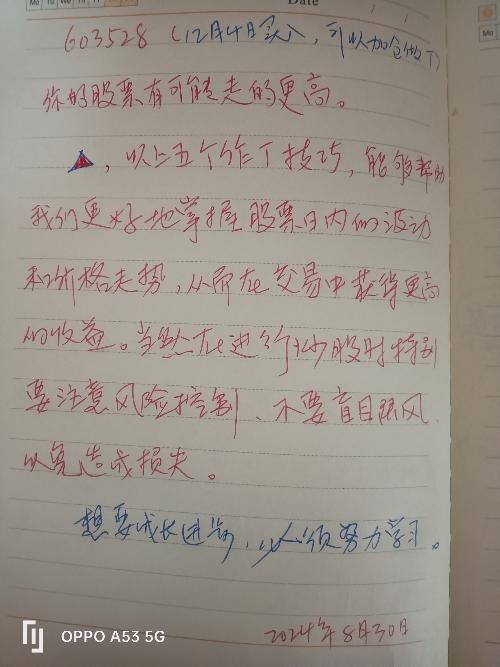 Mo Tu We Th Fr Sa Su
Date
Mo
603528（12月4日买入，可以加仓做T）
你的股票有可能走的更高。
，以上五个作丁技巧，能够帮助
我们更好地掌握股票日内的波动
和价格走势，从而在交易中获得更高
的收益。当然在进行炒股时特别
要注意风险控制、不要盲目跟风
以免造成损失。
想要成长进步，必须努力学习。
2024年8月30日
OPPO A53 5G